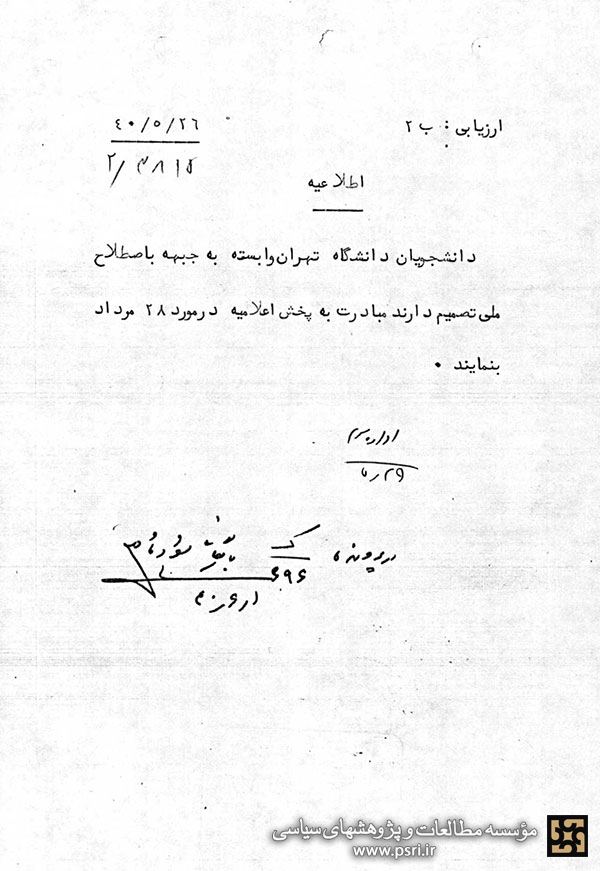 ارزیابی: ب ۲
۴۰/۵/۲۶
اطلاعیه
دانشجویان دانشگاه تهران وابسته به جبهه باصطلاح
ملی تصمیم دارند مبادرت به پخش اعلامیه درمورد ۲۸ مرداد
بنمایند .
در پرونده ک
۶۹۶
مؤسسه مطالعات و پژوهشهای سیاسی
www.psri.ir